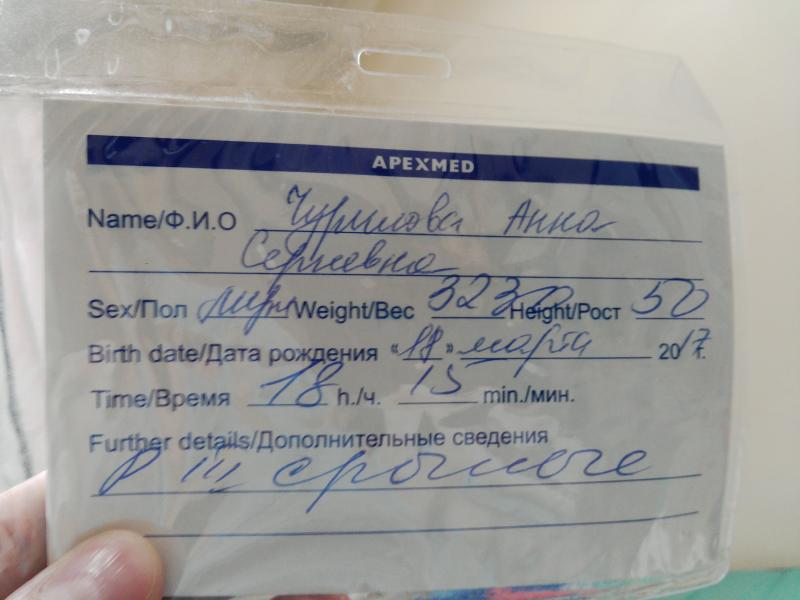 APEXMED
Name/Ф.И.О Чурилова Анна
Сергеевна
Sex/Пол муж Weight/Вес 3230 Height/Рост 50
Birth date/Дата рождения «11» марта 2017 г.
Time/Время 18 h./ч. 15 min./мин.
Further details/Дополнительные сведения
Р III срочные